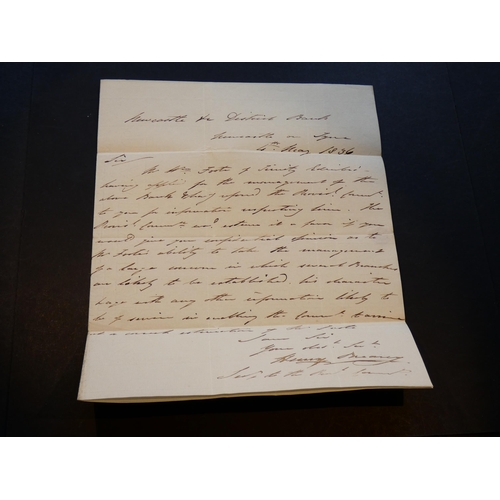 Newcastle &c District Bank
Newcastle on Tyne
4th May 1836
Sir
Mr Wm Foster of Trinity
having applied for the management of the
above Bank & having the Provisl Commee
to you for information respecting him. The
Provisl Commee wd esteem it a favor if you
would give your confidential opinion as to
Mr Foster ability to take the management
of a large concern in which several Branches
are likely to be established, his character
with any other information likely to
be of service in enabling the Commee to
at a correct estimation of Mr Foster
I am Sir
Your obt Servt
Henry
Secy to the Provl Commee